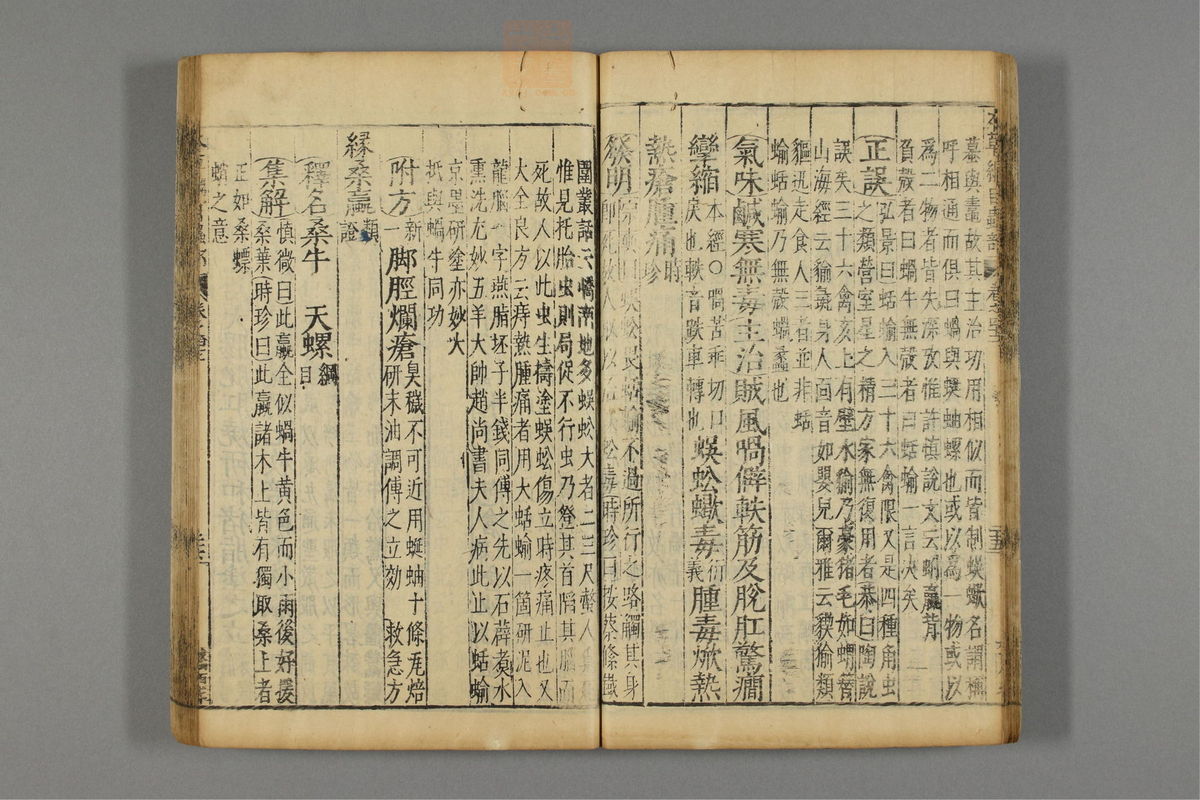 蟇與蟾故其主治功用相似而皆制蜈蠍名謂稱
呼相通而俱曰蝸與蛞蝓螺也或以爲一物或以
爲二物者皆失深攷惟許慎說文云蝸蠃背
負殼者曰蝸牛無殼者曰蛞蝓一言決矣
正誤弘景曰蛞蝓入三十六禽限又是四種角虫
之類營室星之精方家無復用者恭曰陶說
誤矣三十六禽亥上有壁水㺄乃豪猪毛如蝟簪
山海經云㺄彘身人面音如嬰兒爾雅云猰㺄類
貙迅走食人三者並非蛞
蝓蛞蝓乃無殼蝸蠡也
氣味鹹寒無毒主治賊風喎僻軼筋及脫肛驚癎
攣縮本經○喎苦乖切口戾也軼音跌車轉也蜈蚣蠍毒衍義腫毒焮熱
熱瘡腫痛時珍
發明 不過所行之路觸其身
即死故人以 蚣毒時珍曰按蔡絛鐵
圍叢話云嶠南地多蜈蚣大者二三尺螫人
惟見托胎虫則局促不行虫乃登其首陷其腦而
死故人以此虫生擣塗蜈蚣傷立時疼痛止也又
大全良方云痔熱腫痛者用大蛞蝓一箇研泥入
龍腦一字燕脂坯子半錢同傅之先以石薜煮水
熏洗尤妙五羊大帥趙尚書夫人病此止以蛞蝓
京墨研塗亦妙大
抵與蝸牛同功
附方新一脚脛爛瘡臭穢不可近用蜒蚰十條瓦焙研末油調傅之立効 救急方
緣桑蠃證類
釋名桑牛 天螺綱目
集解慎微曰此蠃全似蝸牛黃色而小雨後好援
桑葉時珍曰此蠃諸木上皆有獨取桑上者
正如桑螵
蛸之意